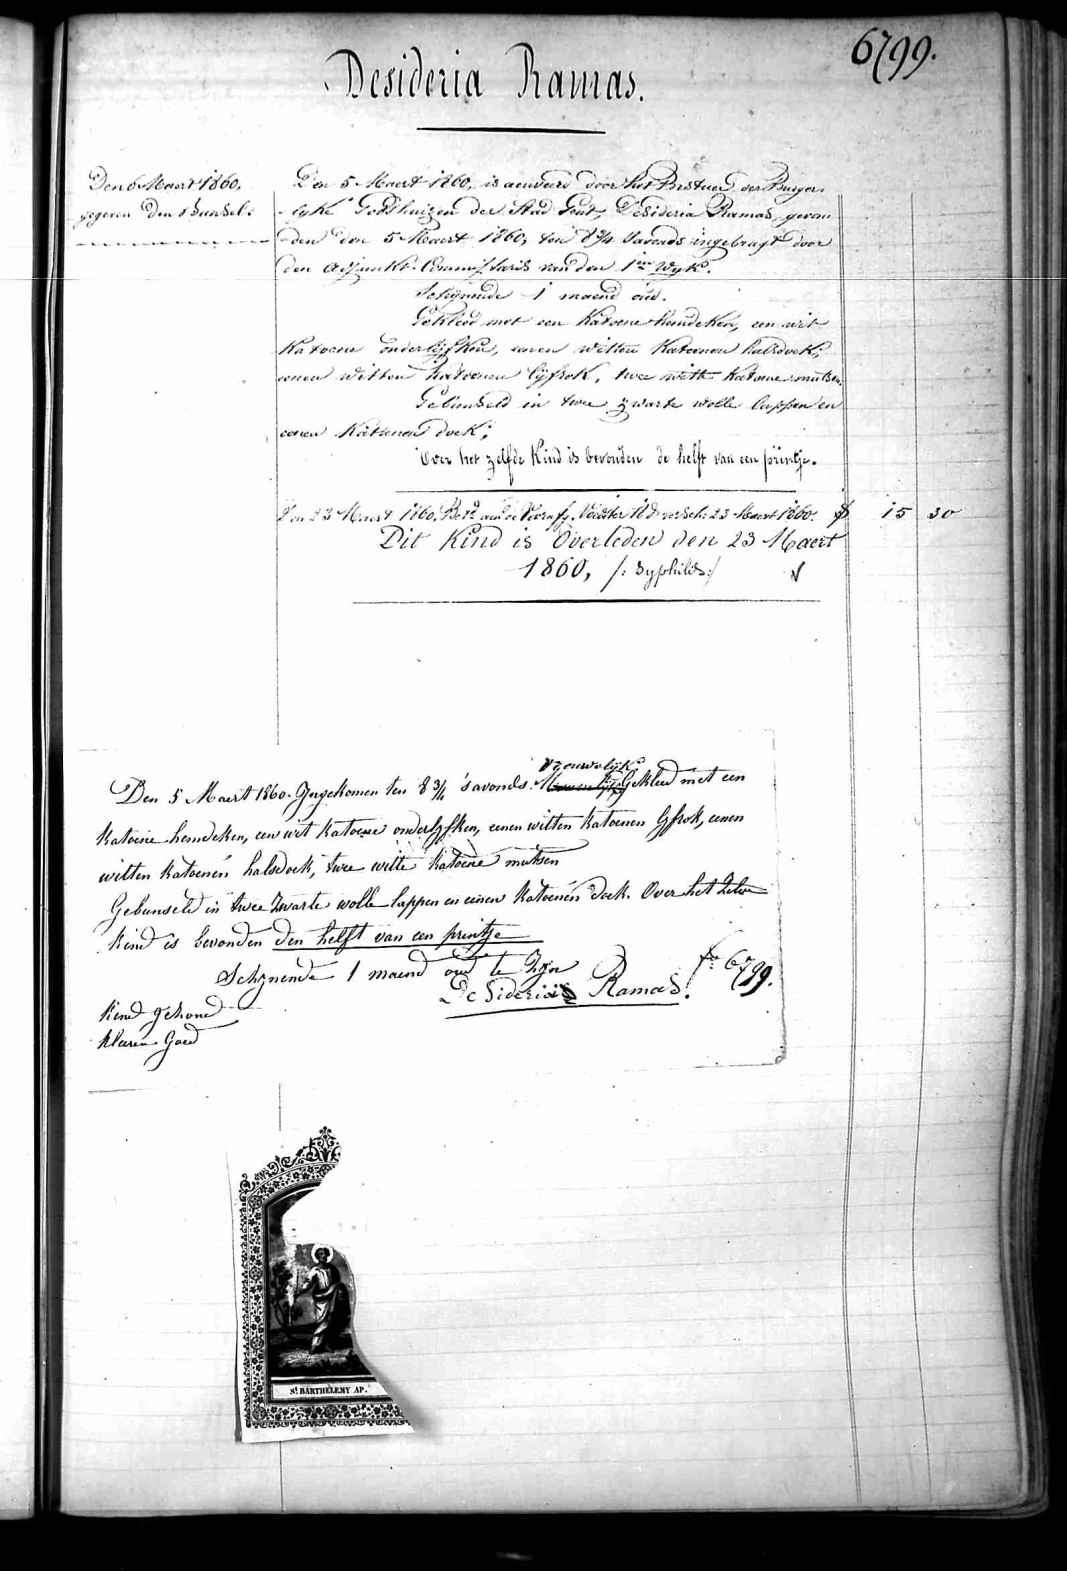 6799.
Desideria Ramas.
Den 6 Maert 1860.
gegeven den Bunsel.
Den 5 Maert 1860, is aenveerd door het Bestuer der Burger-
-lyke Godshuizen der Stad Gent, Desideria Ramas, gevon-
-den den 5 Maert 1860, ten 8¾ 's avonds ingebragt door
den adjunkt-Commissaris van den 1en Wyk.
Schynende 1 maend oud.
Gekleed met een katoene hemdeken, een wit
katoene onderlyfken, eenen witten katoenen halsdoek,
eenen witten katoenen lyfrok, twee witte katoene mutsen.
Gebunseld in twee zwarte wolle lappen en
eenen katoenen doek;
Over het zelfde Kind is bevonden de helft van een printje.
Den 23 Maert 1860. 23 Maert 1860. 15 30
Dit Kind is Overleden den 23 Maert
1860, /: Syphilis :/
Vrouwelyk
Den 5 Maert 1860. Ingekomen ten 8¾ 's avonds. Gekleed met een
katoene hemdeken, een wit katoene onderlyfken, eenen witten katoenen lyfrok, eenen
witten katoenen halsdoek, twee witte katoene mutsen
Gebunseld in twee zwarte wolle lappen en eenen katoenen doek. Over het zelve
kind is bevonden den helft van een printje
Schynende 1 maend oud te zyn
fo 6799.
Desideria Ramas.
Kind gehoond
kleeren Goed
St BARTHÉLEMY AP.